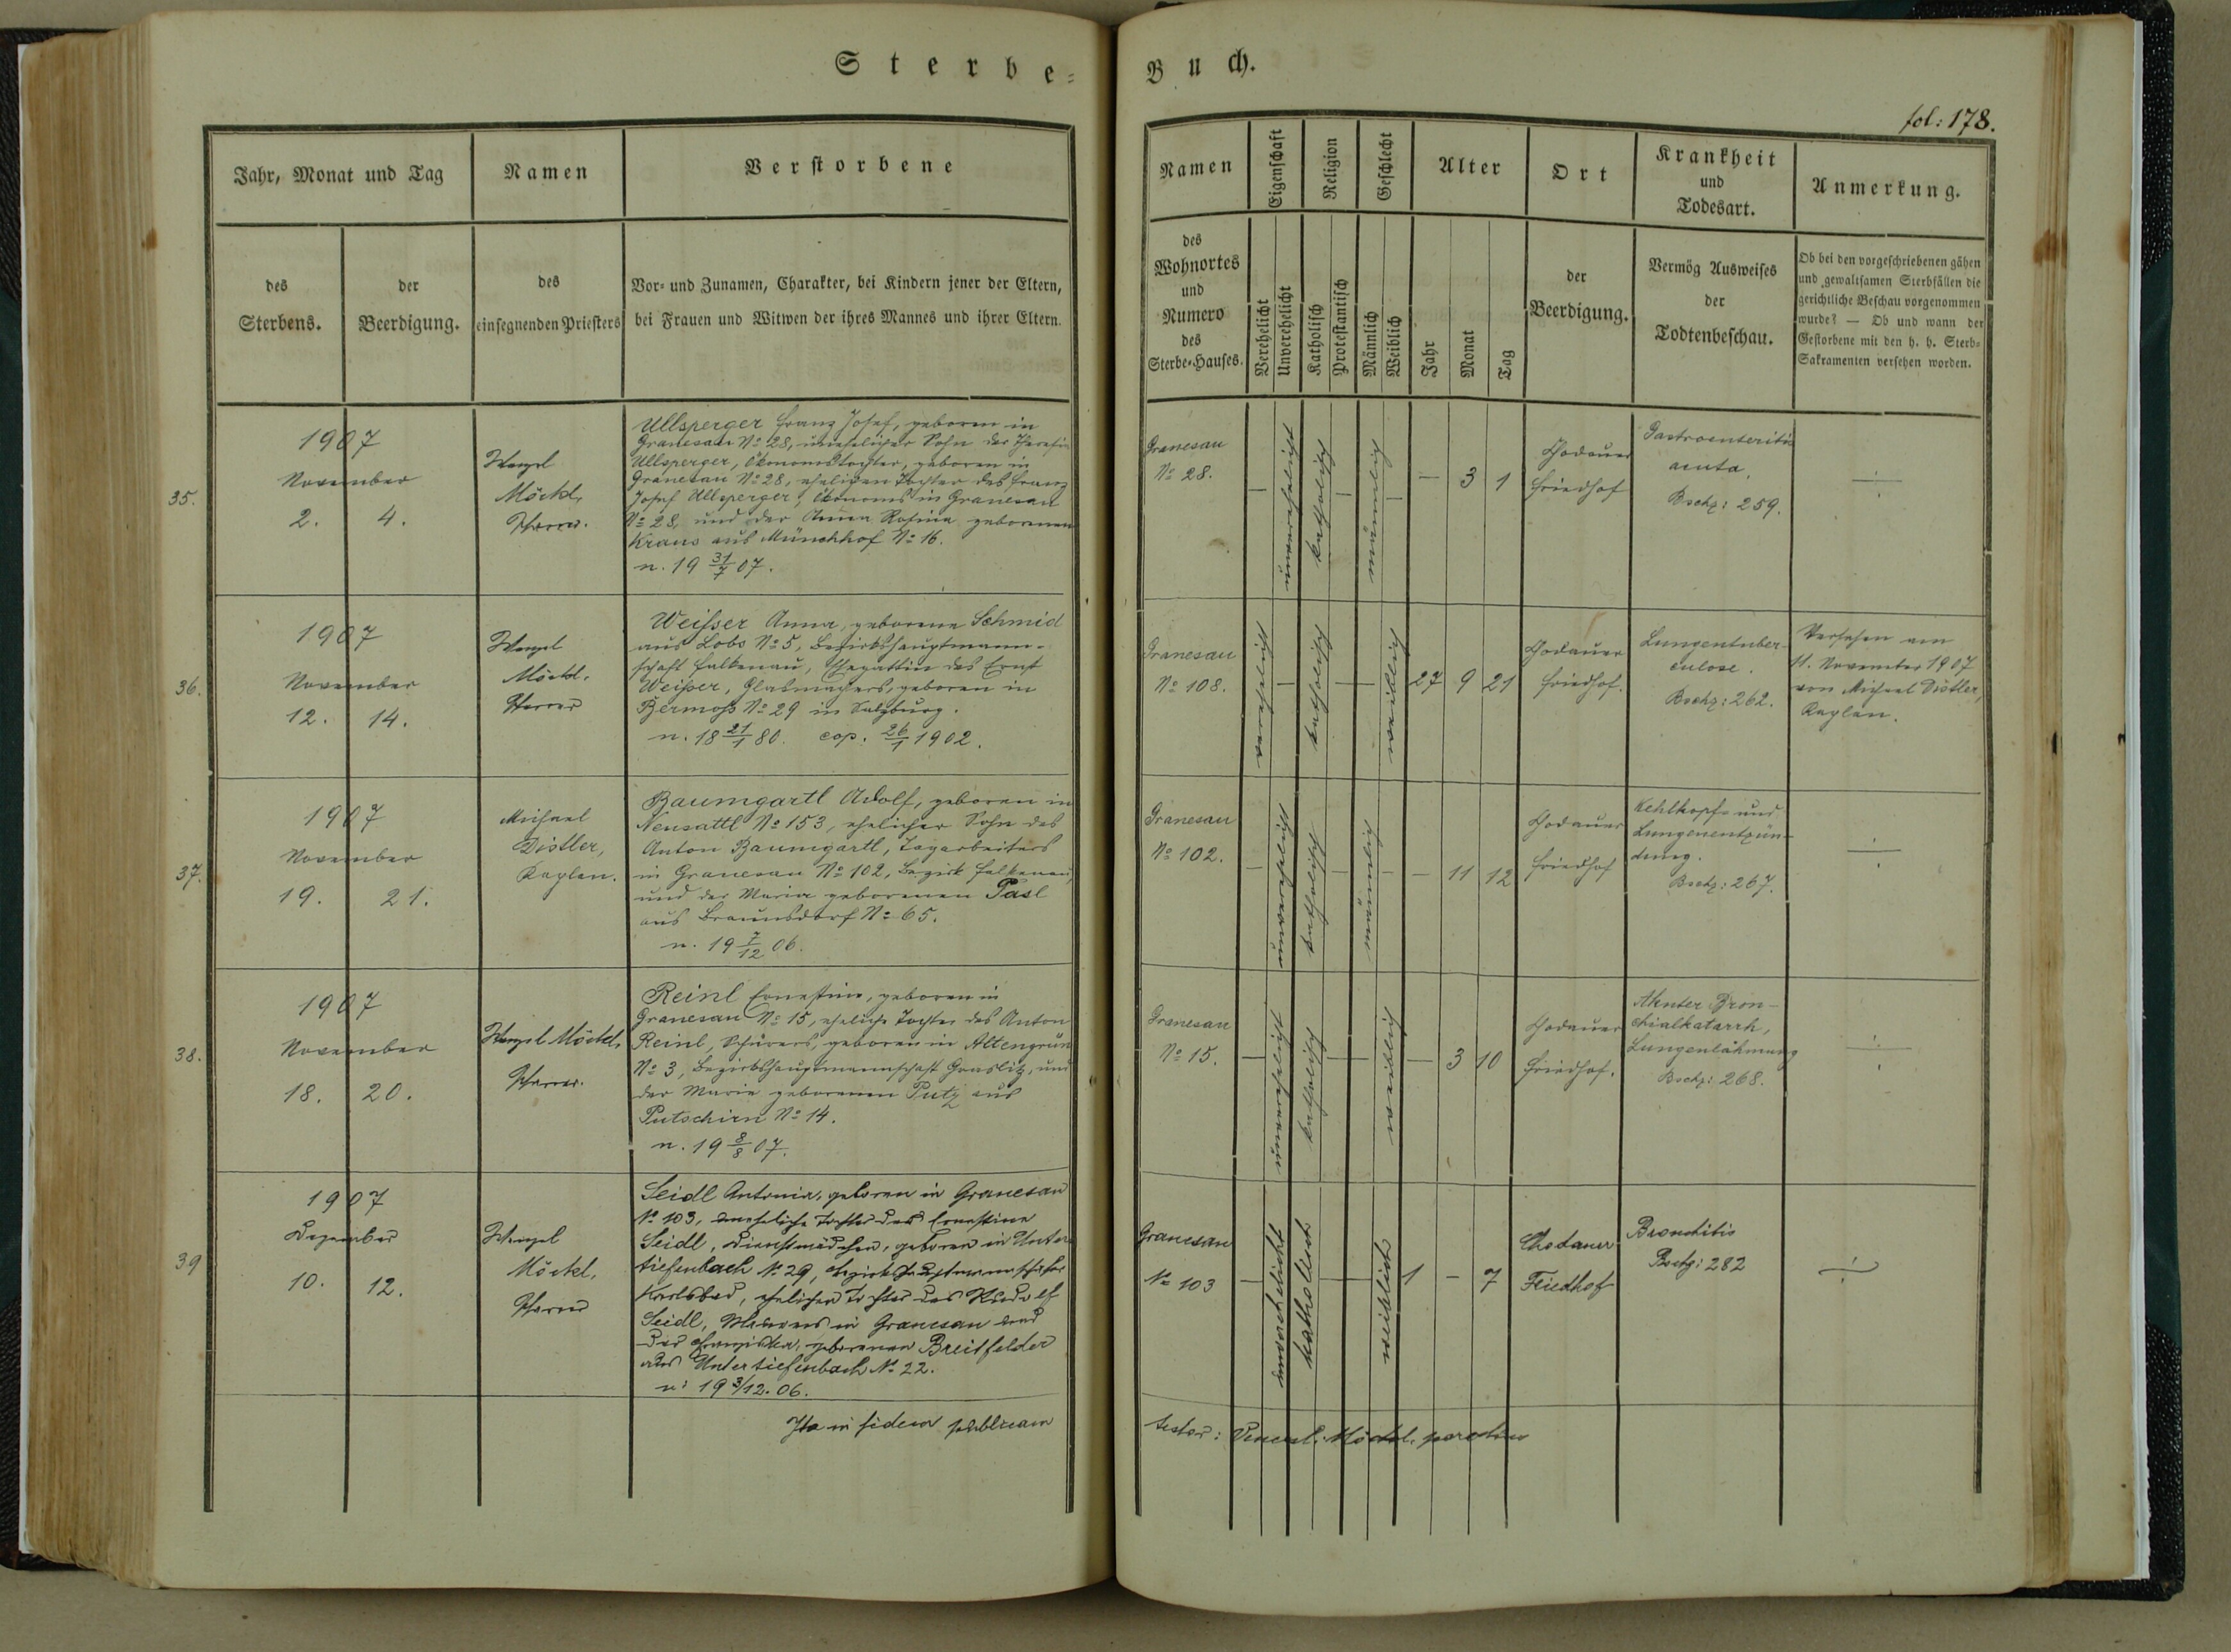 Sterbe-
Jahr, Monat und Tag
Namen
Verstorbene
des
Sterbens.
der
Beerdigung.
des
einsegnenden Priesters
Vor- und Zunamen, Charakter, bei Kindern jener der Eltern,
bei Frauen und Witwen der ihres Mannes und ihrer Eltern.
35.
1907
November
2. 4.
Wenzel
Möckl,
Pfarrer.
Ullsperger Franz Josef, geboren in
Granesau No 28, unehelicher Sohn der Theresia
Ullsperger, Ökonomstochter, geboren in
Granesau No 28, ehelichen Tochter des Franz
Josef Ullsperger, Ökonoms in Granesau
No 28, und der Anna Rosina geborenen
Kraus aus Münchhof No 16.
n. 19 31/7 07.
36.
1907
November
12. 14.
Wenzel
Möckl,
Pfarrer
Weisser Anna, geborene Schmid
aus Lobs No 5, Bezirkshauptmann-
schaft Falkenau, Ehegattin des Ernst
Weisser, Glasmachers, geboren in
Bermoss No 29 in Salzburg.
n. 18 21/1 80. cop. 26/1 1902.
37.
1907
November
19. 21.
Michael
Distler,
Kaplan.
Baumgartl Adolf, geboren in
Neusattl No 153, ehelicher Sohn des
Anton Baumgartl, Tagarbeiters
in Granesau No 102, Bezirk Falkenau,
und der Maria geborenen Pasl
aus Braunsdorf No 65.
n. 19 7/12 06.
38.
1907
November
18. 20.
Wenzel Möckl,
Pfarrer.
Reinl Ernestine, geboren in
Granesau No 15, eheliche Tochter des Anton
Reinl, Schürers, geboren in Altengrün
No 3, Bezirkshauptmannschaft Graslitz, und
der Maria geborenen Putz aus
Putschirn No 14.
n. 19 8/8 07.
39
1907
Dezember
10. 12.
Wenzel
Möckl,
Pfarrer
Seidl Antonia, geboren in Granesau
No 103, uneheliche Tochter der Ernestine
Seidl, Dienstmädchen, geboren in Unter
tiefenbach No 29, Bezirkshauptmannschaft
Karlsbad, ehelichen Tochter des Rudolf
Seidl, Maurers in Granesau und
der Franziska, geborenen Breitfelder
aus Untertiefenbach No 22.
n: 19 3/12. 06.
Ita in fidem publicam
Buch.
fol: 178.
Namen
Eigenschaft
Religion
Geschlecht
Alter
Ort
Krankheit
und
Todesart.
Anmerkung.
des
Wohnortes
und
Numero
des
Sterbe-Hauses.
Verehelicht
Unverehelicht
Katholisch
Protestantisch
Männlich
Weiblich
Jahr
Monat
Tag
der
Beerdigung.
Vermög Ausweises
der
Todtenbeschau.
Ob bei den vorgeschriebenen gähen
und gewaltsamen Sterbfällen die
gerichtliche Beschau vorgenommen
wurde? — Ob und wann der
Gestorbene mit den h. h. Sterb-
Sakramenten versehen worden.
Granesau
No 28.
— unverehelicht katholisch — männlich — — 3 1
Chodauer
Friedhof
Gastroenteritis
acuta,
Bschz: 259.
Granesau
No 108.
verehelicht — katholisch — — weiblich 27 9 21
Chodauer
Friedhof.
Lungentuber-
culose.
Bschz: 262.
Versehen am
11. November 1907
von Michael Distler,
Kaplan.
Granesau
No 102.
— unverehelicht katholisch — männlich — — 11 12
Chodauer
Friedhof
Kehlkopf- und
Lungenentzün-
dung.
Bschz: 267.
Granesau
No 15.
— unverehelicht katholisch — — weiblich — 3 10
Chodauer
Friedhof.
Akuter Bron-
chialkatarrh,
Lungenlähmung
Bschz: 268.
Granesau
No 103
— unverehelicht katholisch — — weiblich 1 — 7
Chodauer
Friedhof
Bronchitis
Bschz: 282
testor: Wenzel Möckl, parochus